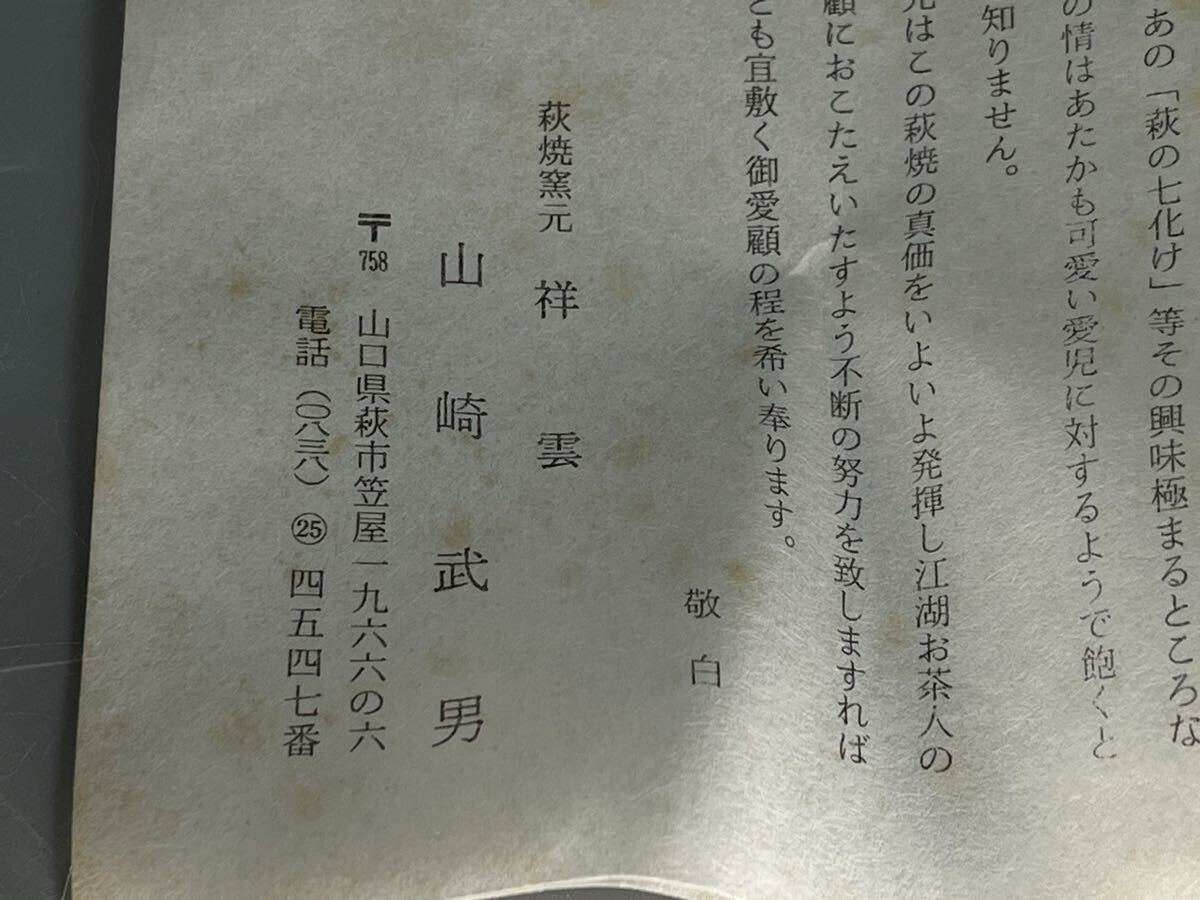 あの「萩の七化け」等その興味極まるところな
の情はあたかも可愛い愛児に対するようで飽くと
知りません。
元はこの萩焼の真価をいよいよ発揮し江湖お茶人の
顧におこたえいたすよう不断の努力を致しますれば
とも宜敷く御愛顧の程を希い奉ります。
敬白
萩焼窯元 祥雲
山崎武男
〒758 山口県萩市笠屋一九六六の六
電話（〇八三八）㉕四五四七番